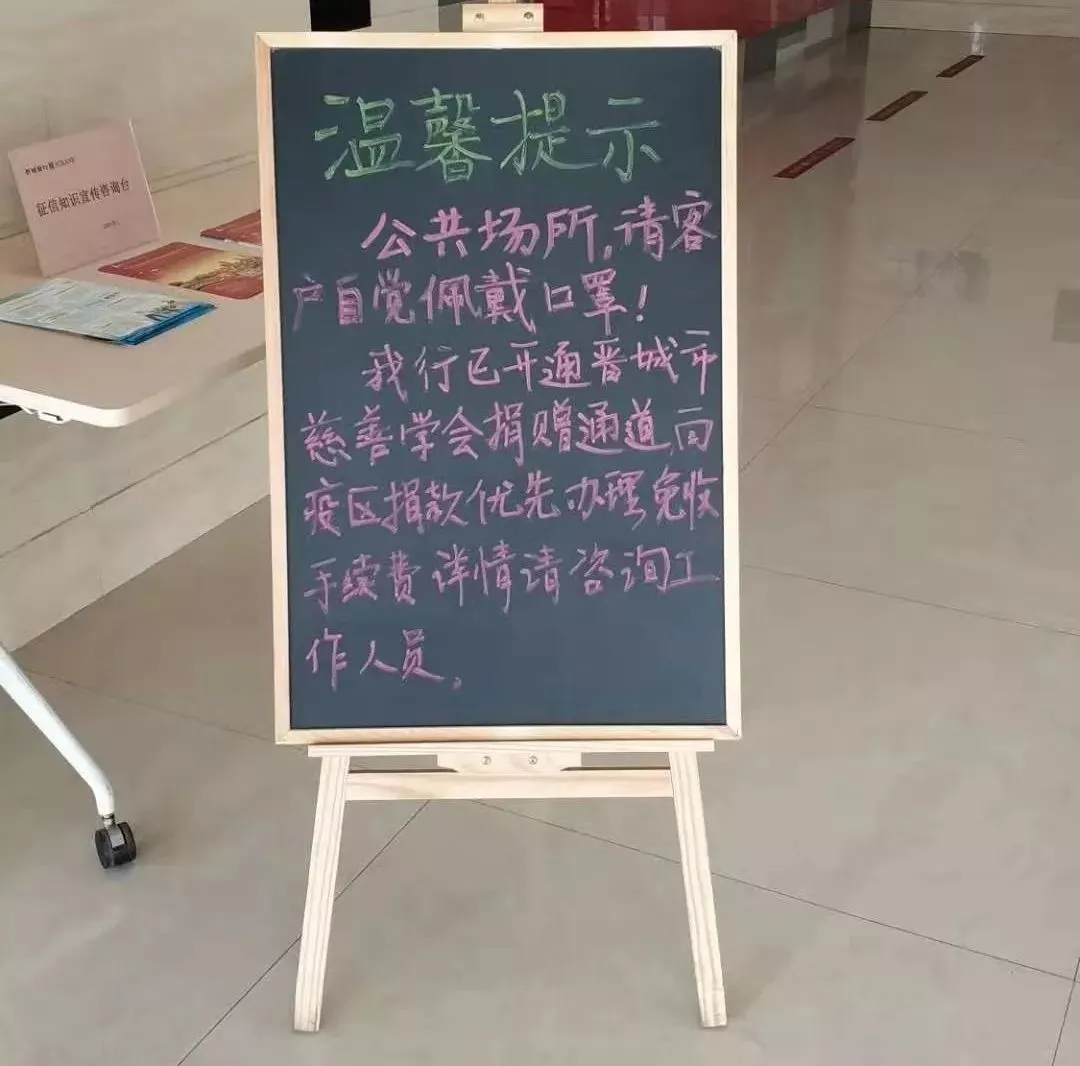 温馨提示
公共场所,请客
户自觉佩戴口罩!
我行已开通晋城市
慈善学会捐赠通道,向
疫区捐款优先办理免收
手续费详情请咨询工
作人员。
征信知识宣传咨询台